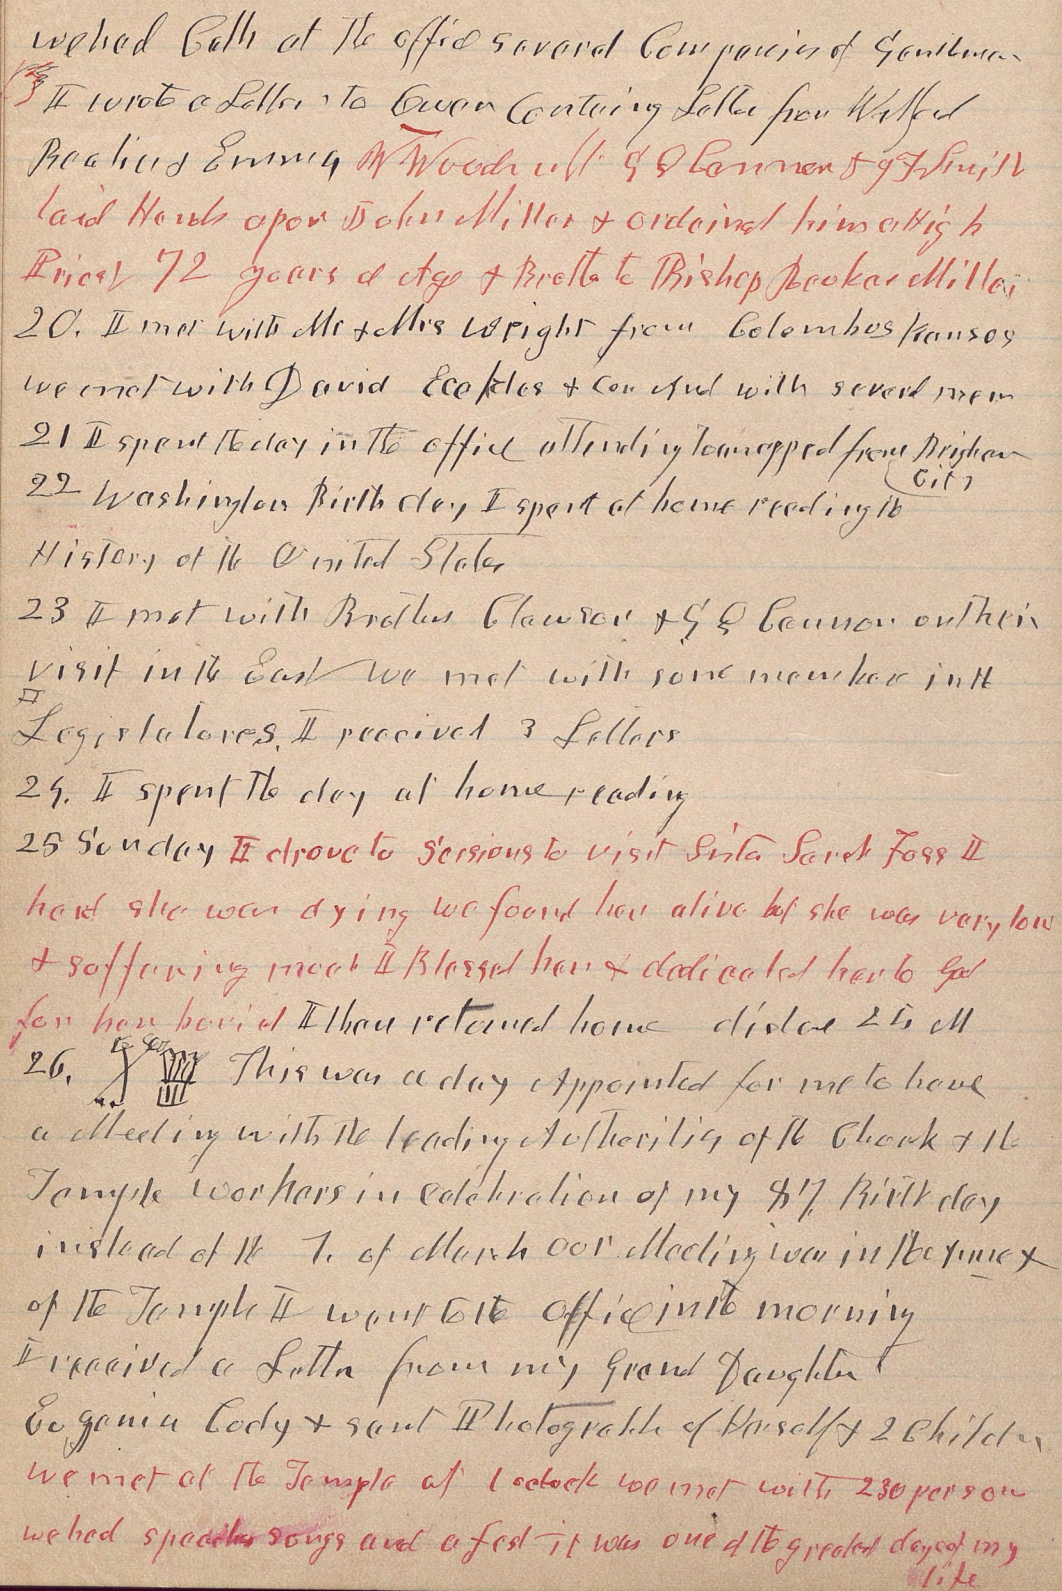 we had Calls at the office several Companies of Gentlemen
I wrote a Letter to Owen Containg Letter from Wilford
Beatie & Emma W Woodruff G Q Cannon & J F Smith
laid Hands upon John Miller & ordained him a High
Priest 72 years of Age & Brother to Bishop Reuben Miller
20. I met with Mr & Mrs Wright from Colembus Kansos
we met with David Eccles & Con And with severl men
21 I spent the day in the office attending to
from Brigham
City
22 Washington Birth day I spent at home reeding the
History of the United States
23 I met with Brothers Clawson & G Q Cannon on their
visit in the East We met with some member in the
Legislatores. I received 3 Letters
24. I spent the day at home reading
25 Sunday I drove to Sessions to visit Sister Sarah Foss I
herd she was dying we found her alive but she was very low
& suffering much I Blessed her & dedicated her to God
for her buriel I then returned home distance 25 M
26. This was a day Appointed for me to have
a Meeting with the leading Authorities of the Church & the
Temple workers in celebration of my 87 Birth day
instead of the 1. of March our Meeting was in the Annex
of the Temple I went to the office in the morning
I received a Letter from my Grand Daughter
Eugenia Cody & sent Photograph of Herself & 2 Children
we met at the Temple at 1 oclock we met with 230 person
we had speeches songs and a fest it was one of the greatest days of my
life